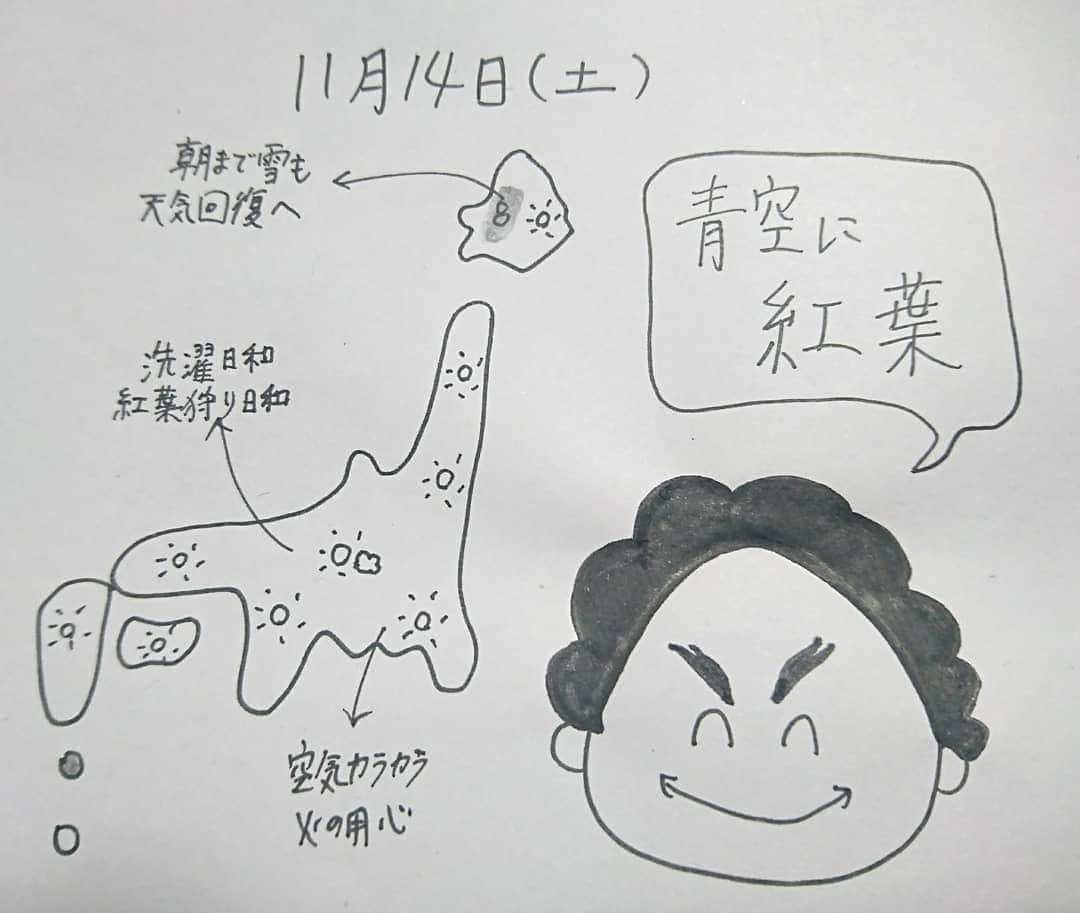 11月14日(土)
朝まで雪も
天気回復へ
青空に
紅葉
洗濯日和
紅葉狩り日和
空気カラカラ
火の用心